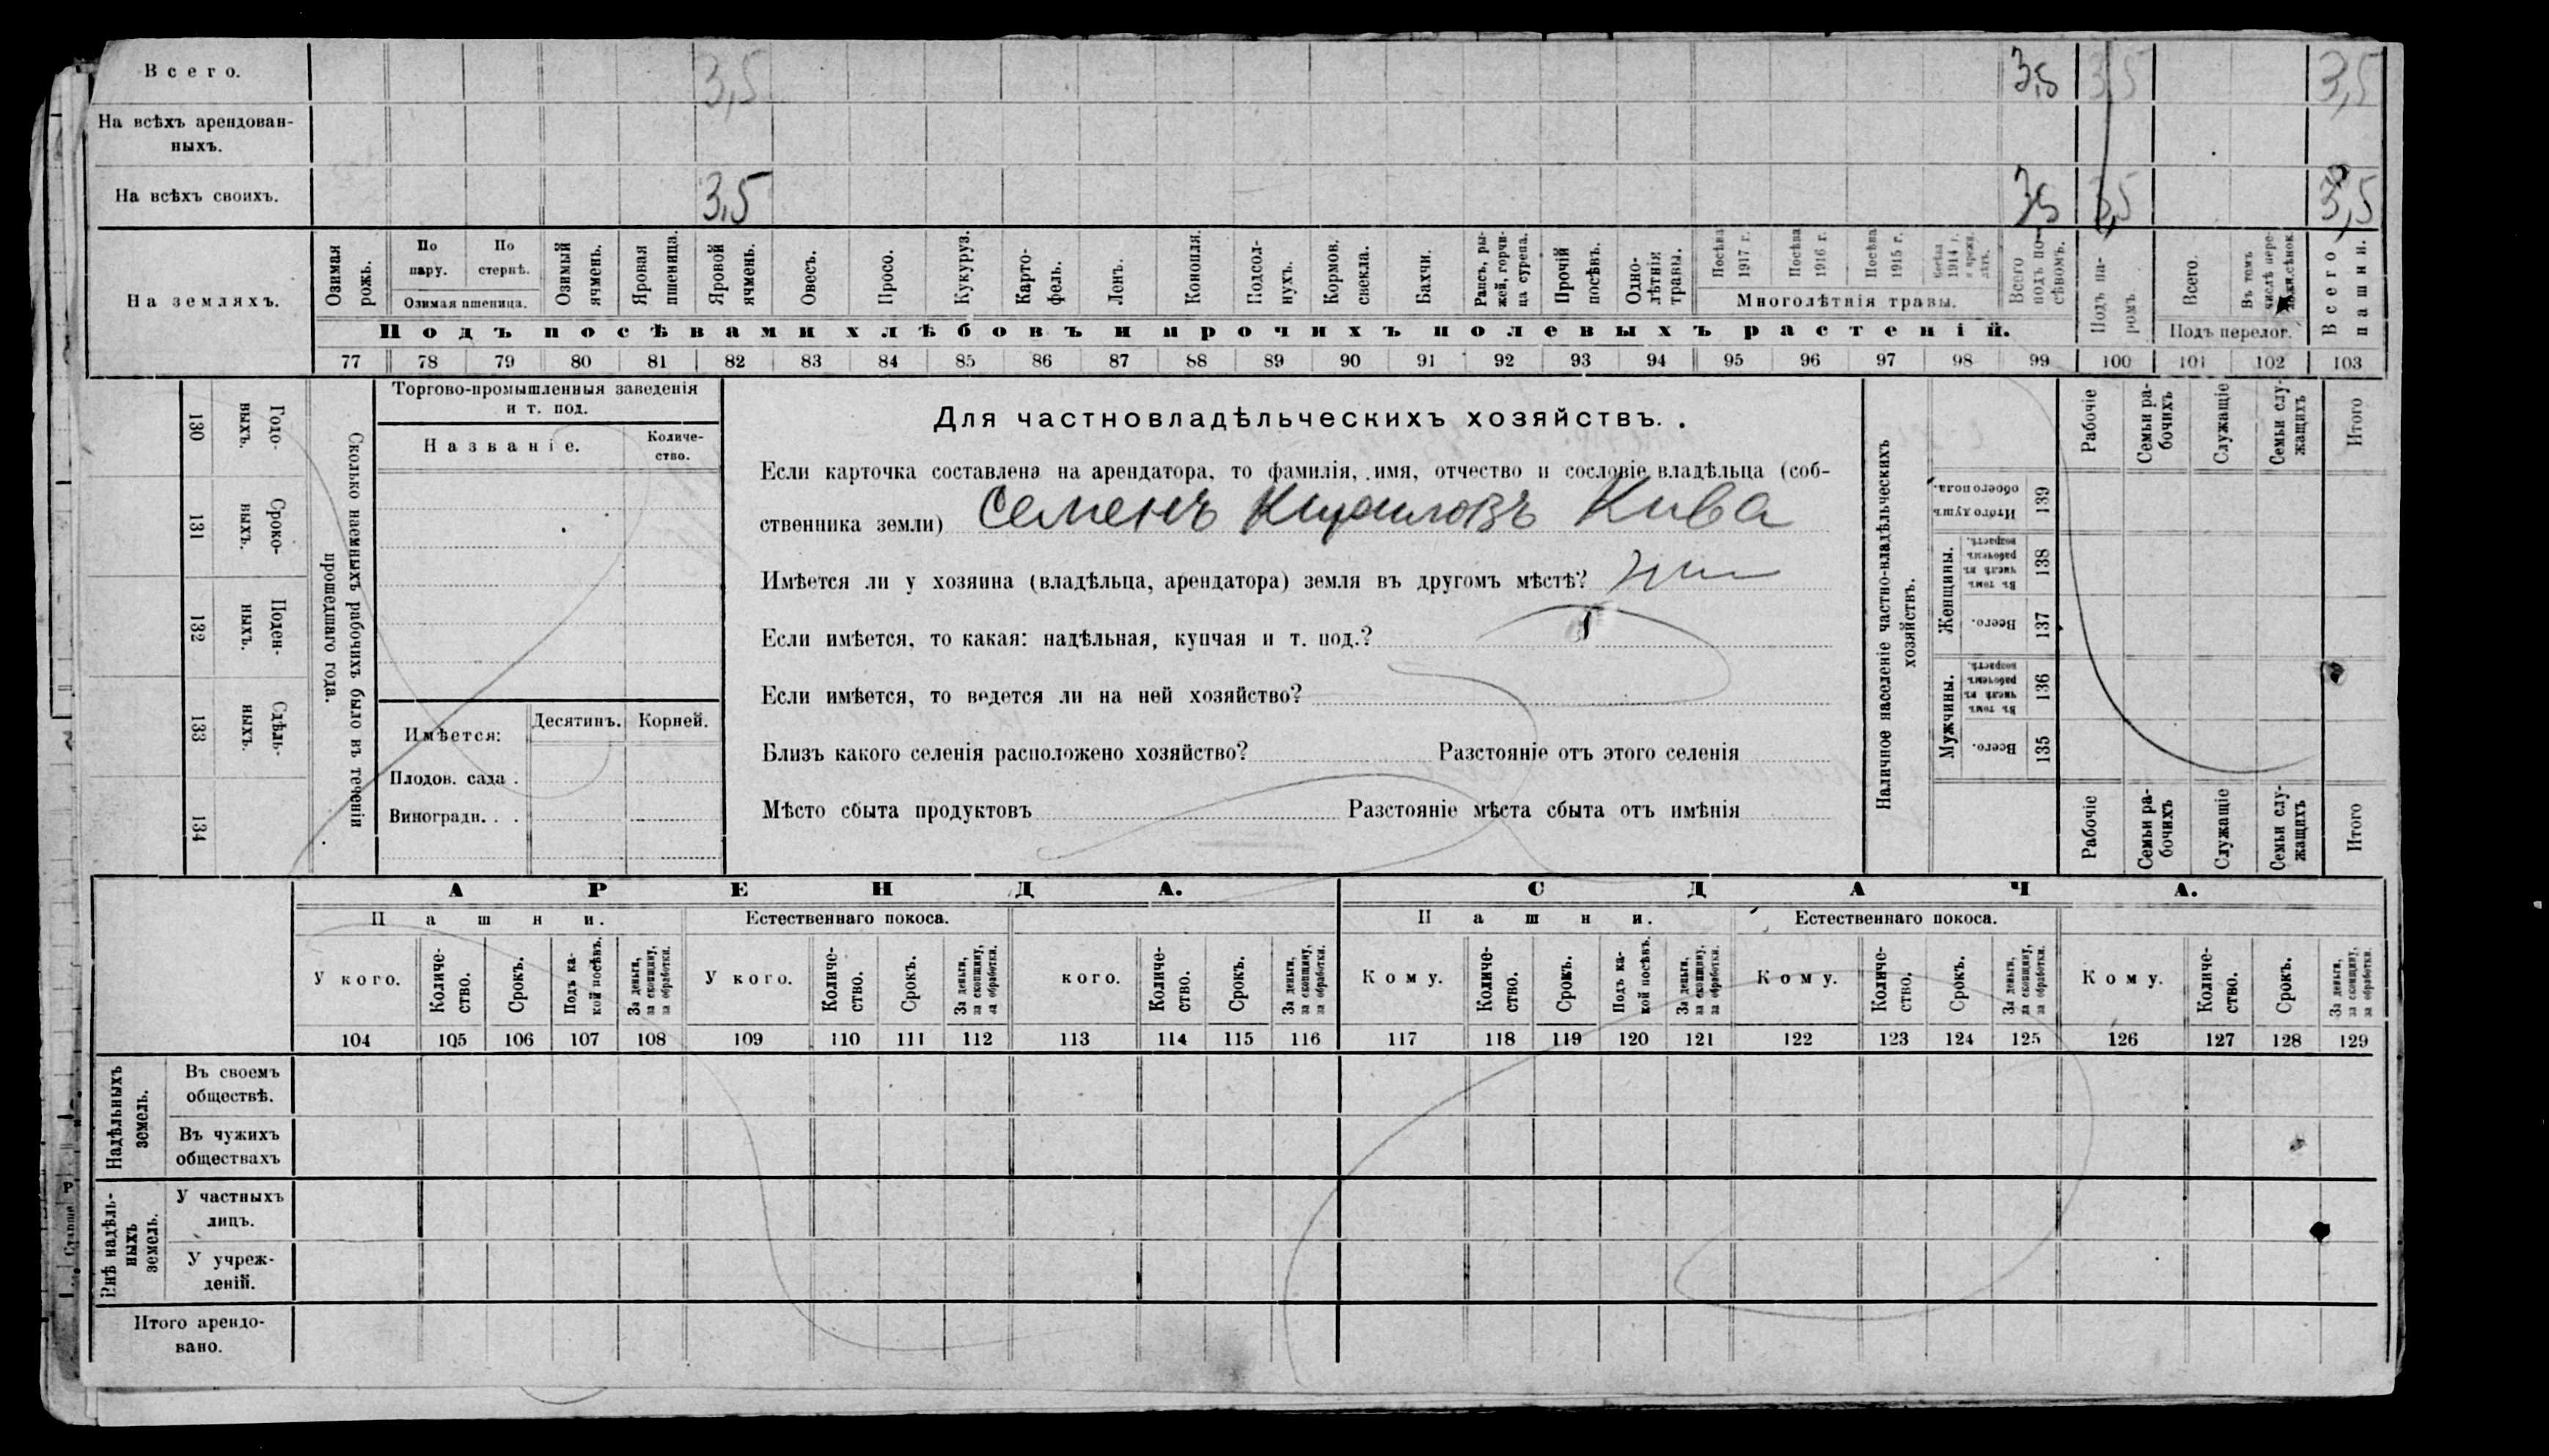 Всего. 3,5 3,5 3,5 3,5
На всѣхъ арендован-
ныхъ.
На всѣхъ своихъ. 3,5 3,5 3,5 3,5
На земляхъ.
Озимая
рожь.
По
пару.
По
стернѣ.
Озимая пшеница.
Озимый
ячмень.
Яровая
пшеница.
Яровой
ячмень.
Овесъ.
Просо.
Кукуруз.
Карто-
фель.
Ленъ.
Конопля.
Подсол-
нухъ.
Кормов.
свекла.
Бахчи.
Рапсъ, ры-
жей, горчи-
ца сурепа.
Прочій
посѣвъ.
Одно-
лѣтнія
травы.
Посѣва
1917 г.
Посѣва
1916 г.
Посѣва
1915 г.
Посѣва
1914 г.
и прежн.
лѣтъ.
Многолѣтнія травы.
Всего
подъ по-
сѣвомъ.
Подъ посѣвами хлѣбовъ и прочихъ полевыхъ растеній.
Подъ па-
ромъ.
Всего.
Въ томъ
числѣ пере-
лож.сѣнок.
Подъ перелог.
Всего
пашни.
77 78 79 80 81 82 83 84 85 86 87 88 89 90 91 92 93 94 95 96 97 98 99 100 101 102 103
Сколько наемныхъ рабочихъ было въ теченіи
прошедшаго года.
Годо-
выхъ.
130
Сроко-
ныхъ.
131
Поден-
ныхъ.
132
Сдѣль-
ныхъ.
133
134
Торгово-промышленныя заведенія
и т. под.
Названіе.
Количе-
ство.
Имѣется:
Десятинъ. Корней.
Плодов. сада .
Виноградн. . .
Для частновладѣльческихъ хозяйствъ.
Если карточка составлена на арендатора, то фамилія, имя, отчество и сословіе владѣльца (соб-
ственника земли) Семенъ Кириловъ Кива
Имѣется ли у хозяина (владѣльца, арендатора) земля въ другомъ мѣстѣ?
Если имѣется, то какая: надѣльная, купчая и т. под.?
Если имѣется, то ведется ли на ней хозяйство?
Близъ какого селенія расположено хозяйство? Разстояніе отъ этого селенія
Мѣсто сбыта продуктовъ Разстояніе мѣста сбыта отъ имѣнія
Наличное населеніе частно-владѣльческихъ
хозяйствъ.
Рабочіе
Семьи ра-
бочихъ
Служащіе
Семьи слу-
жащихъ
Итого
Итого душъ
обоего пола.
139
Женщины.
Въ томъ
числѣ въ
рабочемъ
возрастѣ.
138
Всего.
137
Мужчины.
Въ томъ
числѣ въ
рабочемъ
возрастѣ.
136
Всего.
135
Рабочіе
Семьи ра-
бочихъ
Служащіе
Семьи слу-
жащихъ
Итого
АРЕНДА. СДАЧА.
Пашни. Естественнаго покоса. Пашни. Естественнаго покоса.
У кого.
Количе-
ство.
Срокъ.
Подъ ка-
кой посѣвъ.
За деньги,
за скопщину,
за обработки.
У кого.
Количе-
ство.
Срокъ.
За деньги,
за скопщину,
за обработки.
кого.
Количе-
ство.
Срокъ.
За деньги,
за скопщину,
за обработки.
Кому.
Количе-
ство.
Срокъ.
Подъ ка-
кой посѣвъ.
За деньги,
за скопщину,
за обработки.
Кому.
Количе-
ство.
Срокъ.
За деньги,
за скопщину,
за обработки.
Кому.
Количе-
ство.
Срокъ.
За деньги,
за скопщину,
за обработки.
104 105 106 107 108 109 110 111 112 113 114 115 116 117 118 119 120 121 122 123 124 125 126 127 128 129
Надѣльныхъ
земель.
Въ своемъ
обществѣ.
Въ чужихъ
обществахъ
Внѣ надѣль-
ныхъ
земель.
У частныхъ
лицъ.
У учреж-
деній.
Итого арендо-
вано.